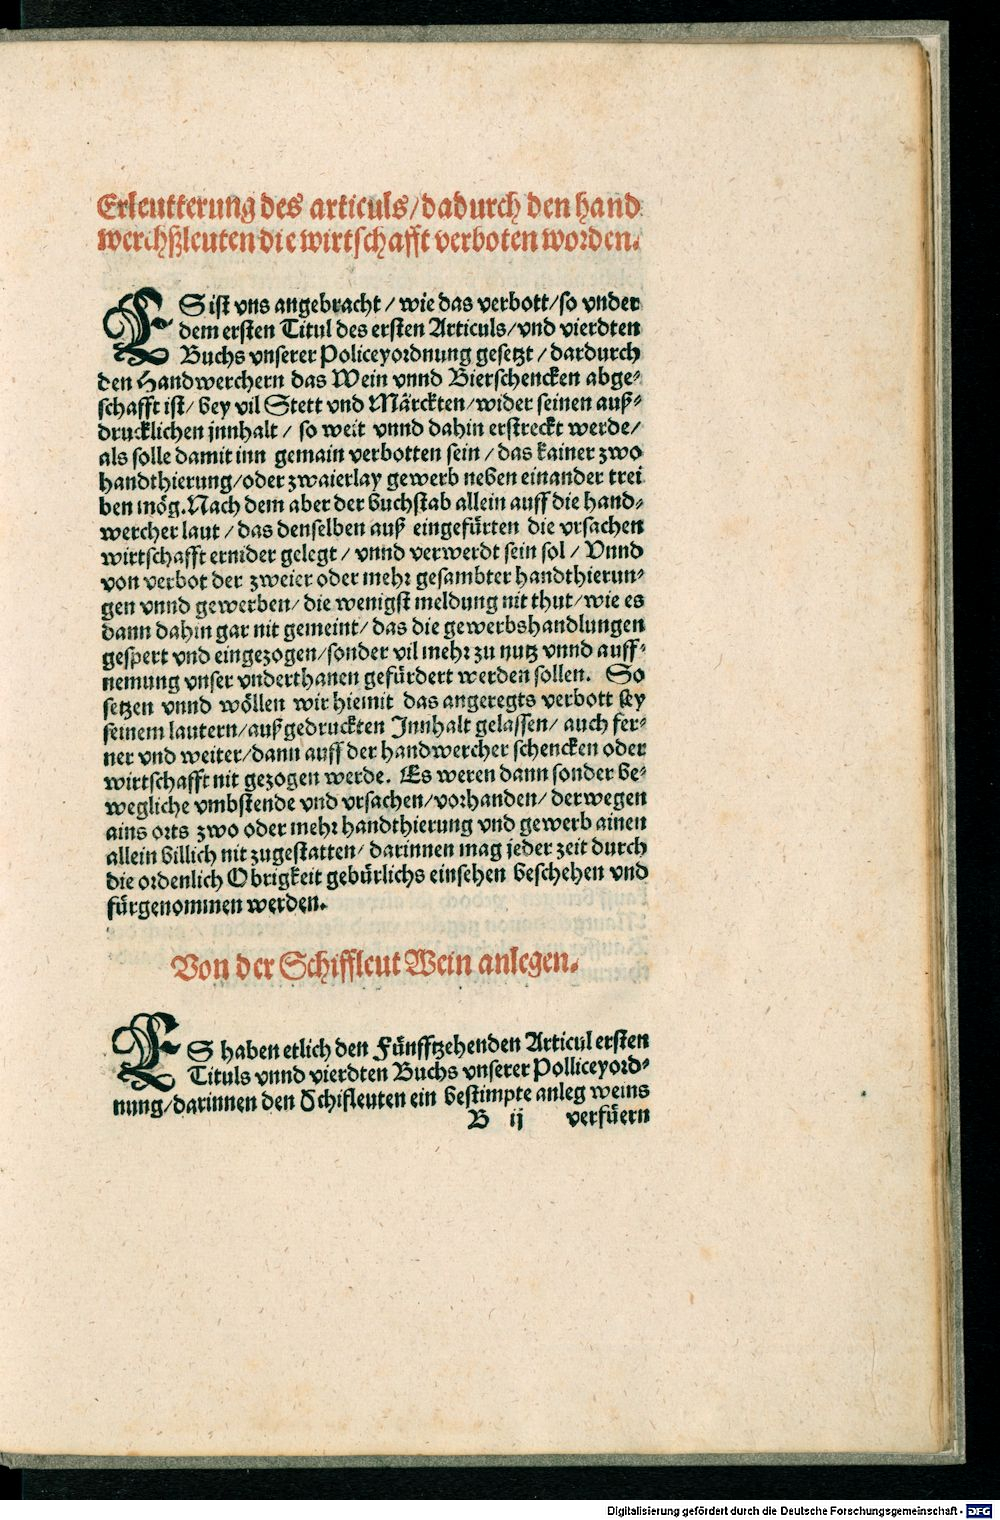 Erleutterung des articuls/dadurch den hand
werchßleuten die wirtschafft verboten worden.
ES ist vns angebracht / wie das verbott/so vnder
dem ersten Titul des ersten Articuls/vnd vierdten
Buchs vnserer Policeyordnung gesetzt / dardurch
den Handwerchern das Wein vnnd Bierschencken abge⸗
schafft ist/ bey vil Stett vnd Märckten/wider seinen auß⸗
drucklichen jnnhalt / so weit vnnd dahin erstreckt werde/
als solle damit inn gemain verbotten sein / das kainer zwo
handthierung/oder zwaierlay gewerb neben einander trei
ben mög. Nach dem aber der buchstab allein auff die hand⸗
wercher laut / das denselben auß eingefürten die vrsachen
wirtschafft ernider gelegt / vnnd verwerdt sein sol / Vnnd
von verbot der zweier oder mehr gesambter handthierun⸗
gen vnnd gewerben/ die wenigst meldung nit thut/wie es
dann dahin gar nit gemeint/das die gewerbshandlungen
gespert vnd eingezogen/sonder vil mehr zu nutz vnnd auff⸗
nemung vnser vnderthanen gefürdert werden sollen. So
setzen vnnd wöllen wir hiemit das angeregts verbott sey
seinem lautern/außgedruckten Innhalt gelassen/ auch fer⸗
ner vnd weiter/dann auff der handwercher schencken oder
wirtschafft nit gezogen werde. Es weren dann sonder be⸗
wegliche vmbstende vnd vrsachen/vorhanden/ derwegen
ains orts zwo oder mehr handthierung vnd gewerb ainen
allein billich nit zugestatten/ darinnen mag jeder zeit durch
die ordenlich Obrigkeit gebürlichs einsehen beschehen vnd
fürgenommen werden.
Von der Schiffleut Wein anlegen.
ES haben etlich den Fünfftzehenden Articul ersten
Tituls vnnd vierdten Buchs vnserer Polliceyord⸗
nung/darinnen den Schifleuten ein bestimpte anleg weins
B ij verfüern
Digitalisierung gefördert durch die Deutsche Forschungsgemeinschaft - DFG